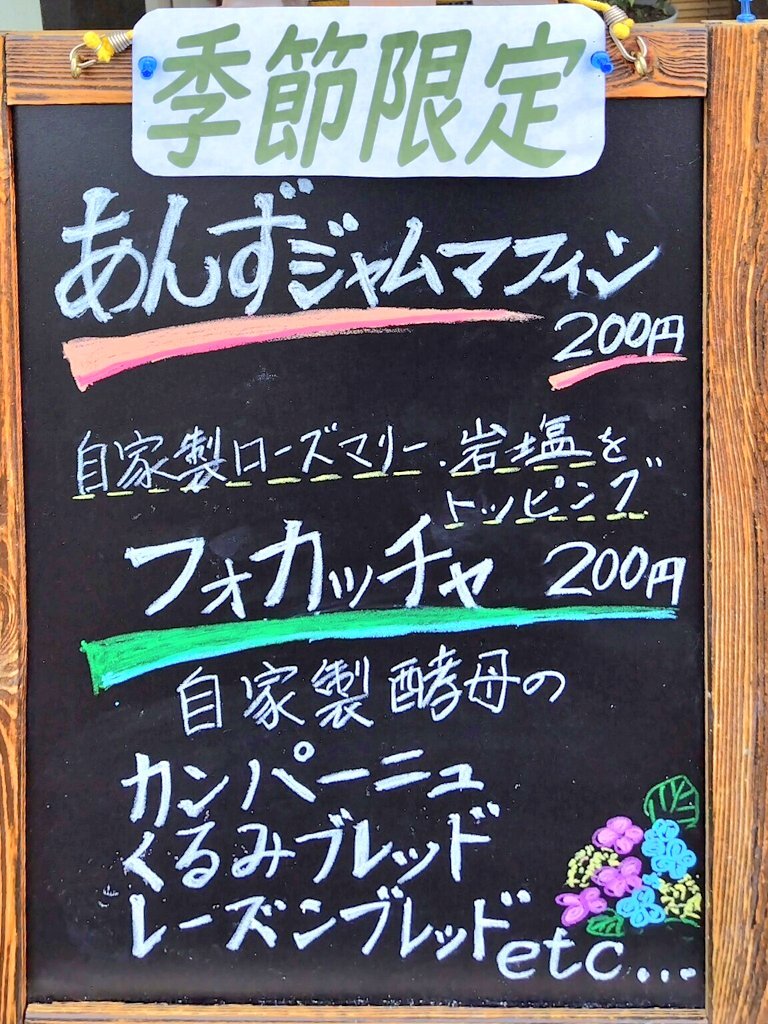 季節限定
あんずジャムマフィン
200円
自家製ローズマリー・岩塩を
トッピング
フォカッチャ 200円
自家製酵母の
カンパーニュ
くるみブレッド
レーズンブレッド etc...